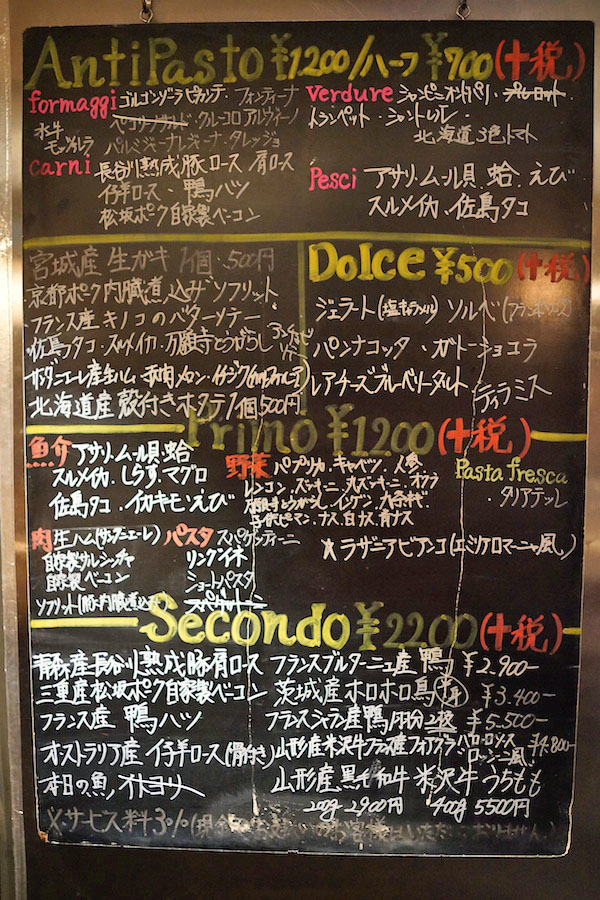 AntiPasto ¥1200/ハーフ ¥700(十税)
formaggi ゴルゴンゾーラピカンテ・フォンティーナ
水牛モッツァレラ ペコリーノサルド・クレーコロアルヴィーノ
パルミジャーナレッジャーナ・タレッジョ
carni 長谷川熟成豚ロース 肩ロース
仔羊ロース・鴨ハツ
松坂ポーク自家製ベーコン
verdure シャンピニオンパリ・プレロット
トランペット・シャントレル
北海道3色トマト
Pesci アサリ・ムール貝・蛤・えび
スルメイカ・佐島タコ
宮城産 生ガキ 1個 500円
京都ポーク内臓煮込み ソフリット
フランス産キノコのバターソテー
佐島タコ・スルメイカ・万願寺とうがらし
サンダニエーレ産生ハム・赤肉メロン・イチジク
北海道産殻付きホタテ 1個 500円
Dolce ¥500(十税)
ジェラート(塩キャラメル) ソルベ
パンナコッタ・ガトーショコラ
レアチーズブルーベリータルト
ティラミス
Primo ¥1200(十税)
魚介 アサリ・ムール貝・蛤
スルメイカ・しらす・マグロ
佐島タコ・イカキモ・えび
肉 生ハム(サンダニエーレ)
自家製サルシッチャ
自家製ベーコン
ソフリット(豚内臓煮込み)
野菜 パプリカ・キャベツ・人参
レンコン・ズッキーニ・丸ズッキーニ・オクラ
万願寺とうがらし・インゲン・九条ネギ
ピーマン・ナス・白ナス・青ナス
パスタ スパゲッティーニ
リングイネ
ショートパスタ
スパゲットーニ
Pasta fresca
・タリアテッレ
ラザニアビアンコ(エミリアロマーニャ風)
Secondo ¥2200(十税)
静岡産長谷川熟成豚肩ロース
三重産松坂ポーク自家製ベーコン
フランス産 鴨ハツ
オストラリア産 仔羊ロース(骨付き)
本日の魚 イトヨリ
フランスブルターニュ産 鴨 ¥2.900-
茨城産ホロホロ鳥(半羽) ¥3.400-
フランスシャラン産鴨 1羽分2枚 ¥5.500-
山形産米沢牛 フランス産フォアグラ!バローロソース ロッシーニ風! ¥4.800-
山形産黒毛和牛 米沢牛うちもも
200g 2900円 400g 5500円
※サービス料3%(現金